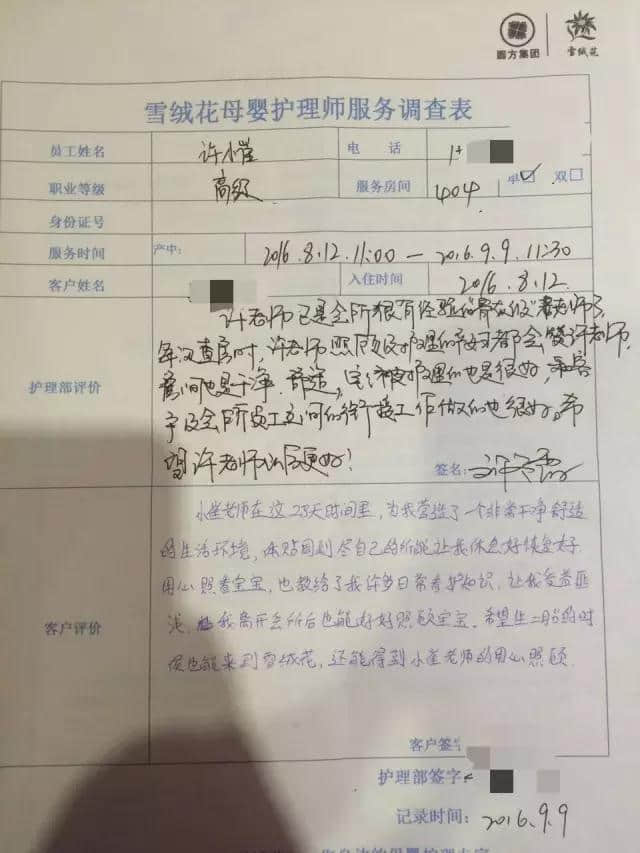 喜方集团 雪绒花
雪绒花母婴护理师服务调查表
员工姓名 许小崔 电话 1
职业等级 高级 服务房间 404 单☑ 双□
身份证号
服务时间 产中: 2016.8.12.11:00 — 2016.9.9.11:30
客户姓名 入住时间 2016.8.12.
许老师已是会所很有经验的 老师了,
每次查房时,许老师照顾 护理的 都会 许老师,
房间也是干净、舒适,宝宝被护理的也是很好,和客
户及会所员工之间的衔接工作做的也很好。希
护理部评价
望许老师 更好!
签名:
小崔老师在这28天时间里,为我营造了一个非常干净舒适
的生活环境,体贴周到尽自己的所能让我休息好恢复好
用心照看宝宝,也教给了我许多日常看护知识,让我受益匪
浅,让我离开会所后也能好好照顾宝宝。希望生二胎的时
客户评价
候也能来到雪绒花,还能得到小崔老师的用心照顾
客户签
护理部签字
记录时间: 2016.9.9